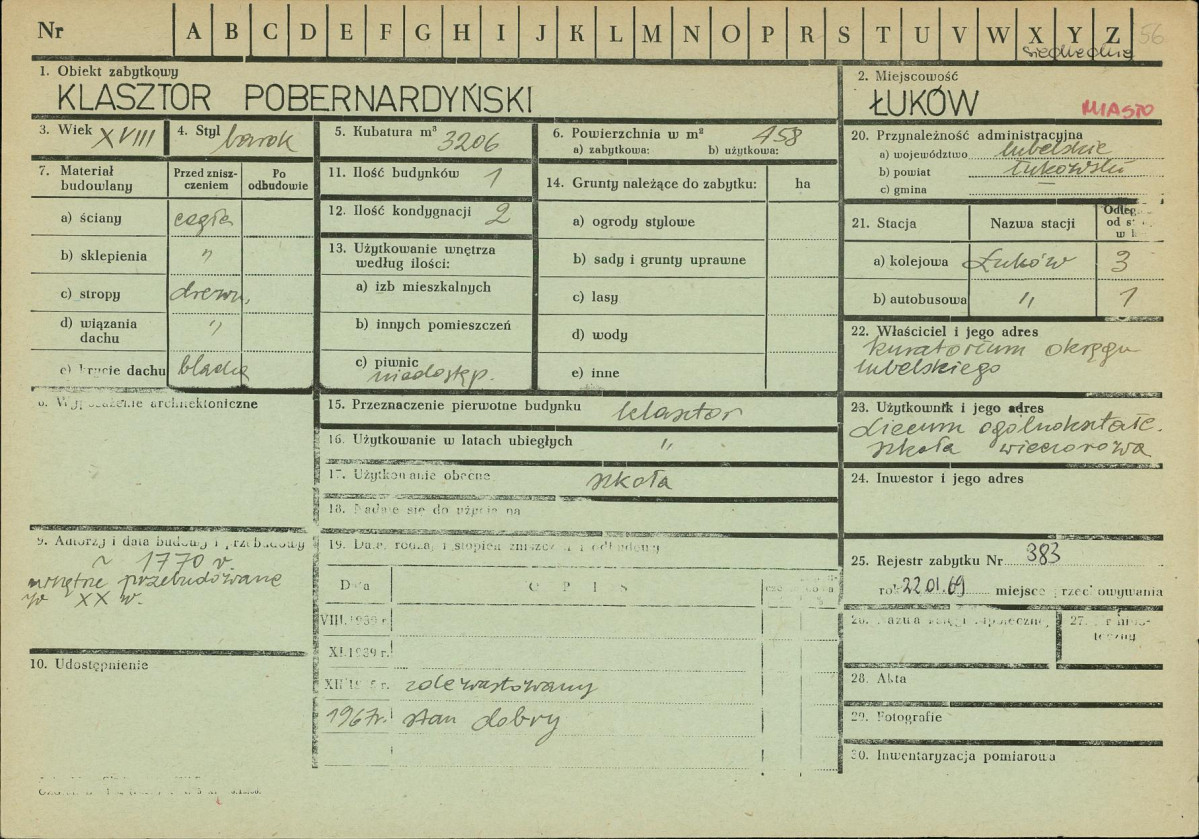 Nr A B C D E F G H I J K L M N O P R S T U V W X Y Z 56
siedleckie
1. Obiekt zabytkowy
KLASZTOR POBERNARDYŃSKI
2. Miejscowość
ŁUKÓW MIASTO
3. Wiek XVIII
4. Styl barok
5. Kubatura m³ 3206
6. Powierzchnia w m² 458
a) zabytkowa: b) użytkowa:
7. Materiał budowlany
Przed zniszczeniem
Po odbudowie
a) ściany cegła
b) sklepienia "
c) stropy drewn.
d) wiązania dachu "
e) krycie dachu blacha
8. Wyposażenie architektoniczne
9. Autorzy i data budowy i przebudowy
~ 1770 r.
wnętrze przebudowane
w XX w.
10. Udostępnienie
11. Ilość budynków 1
12. Ilość kondygnacji 2
13. Użytkowanie wnętrza
według ilości:
a) izb mieszkalnych
b) innych pomieszczeń
c) piwnic
niedostęp.
14. Grunty należące do zabytku: ha
a) ogrody stylowe
b) sady i grunty uprawne
c) lasy
d) wody
e) inne
15. Przeznaczenie pierwotne budynku klasztor
16. Użytkowanie w latach ubiegłych "
17. Użytkowanie obecne szkoła
18. Nadaje się do użycia na
19. Data, rodzaj i stopień zniszczenia i odbudowy
Data OPIS
VIII.1939 r.
XI.1939 r.
XII 1945 r. zdewastowany
1967r. stan dobry
20. Przynależność administracyjna
a) województwo lubelskie
b) powiat łukowski
c) gmina —
21. Stacja Nazwa stacji
a) kolejowa Łuków 3
b) autobusowa " 1
22. Właściciel i jego adres
Kuratorium okręgu
lubelskiego
23. Użytkownik i jego adres
Liceum ogólnokształc.
szkoła wieczorowa
24. Inwestor i jego adres
25. Rejestr zabytku Nr 383
rok 22.01.69 miejsce przechowywania
26. Nazwa księgi hipotecznej
27. Nr hipoteczny
28. Akta
29. Fotografie
30. Inwentaryzacja pomiarowa